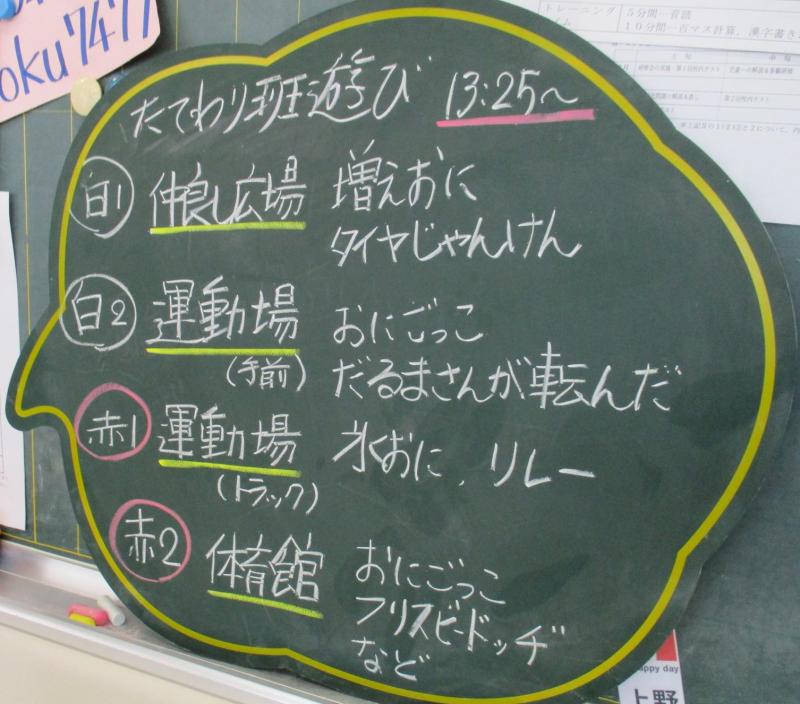 oku7477
トレーニング
５分間－音読
１０分間－百マス計算，漢字書き
たてわり班遊び 13:25～
白1 仲良し広場 増えおに
タイヤじゃんけん
白2 運動場 おにごっこ
(手前) だるまさんが転んだ
赤1 運動場 氷おに、リレー
(トラック)
赤2 体育館 おにごっこ
フリスビードッヂ
など
ppy day
上野